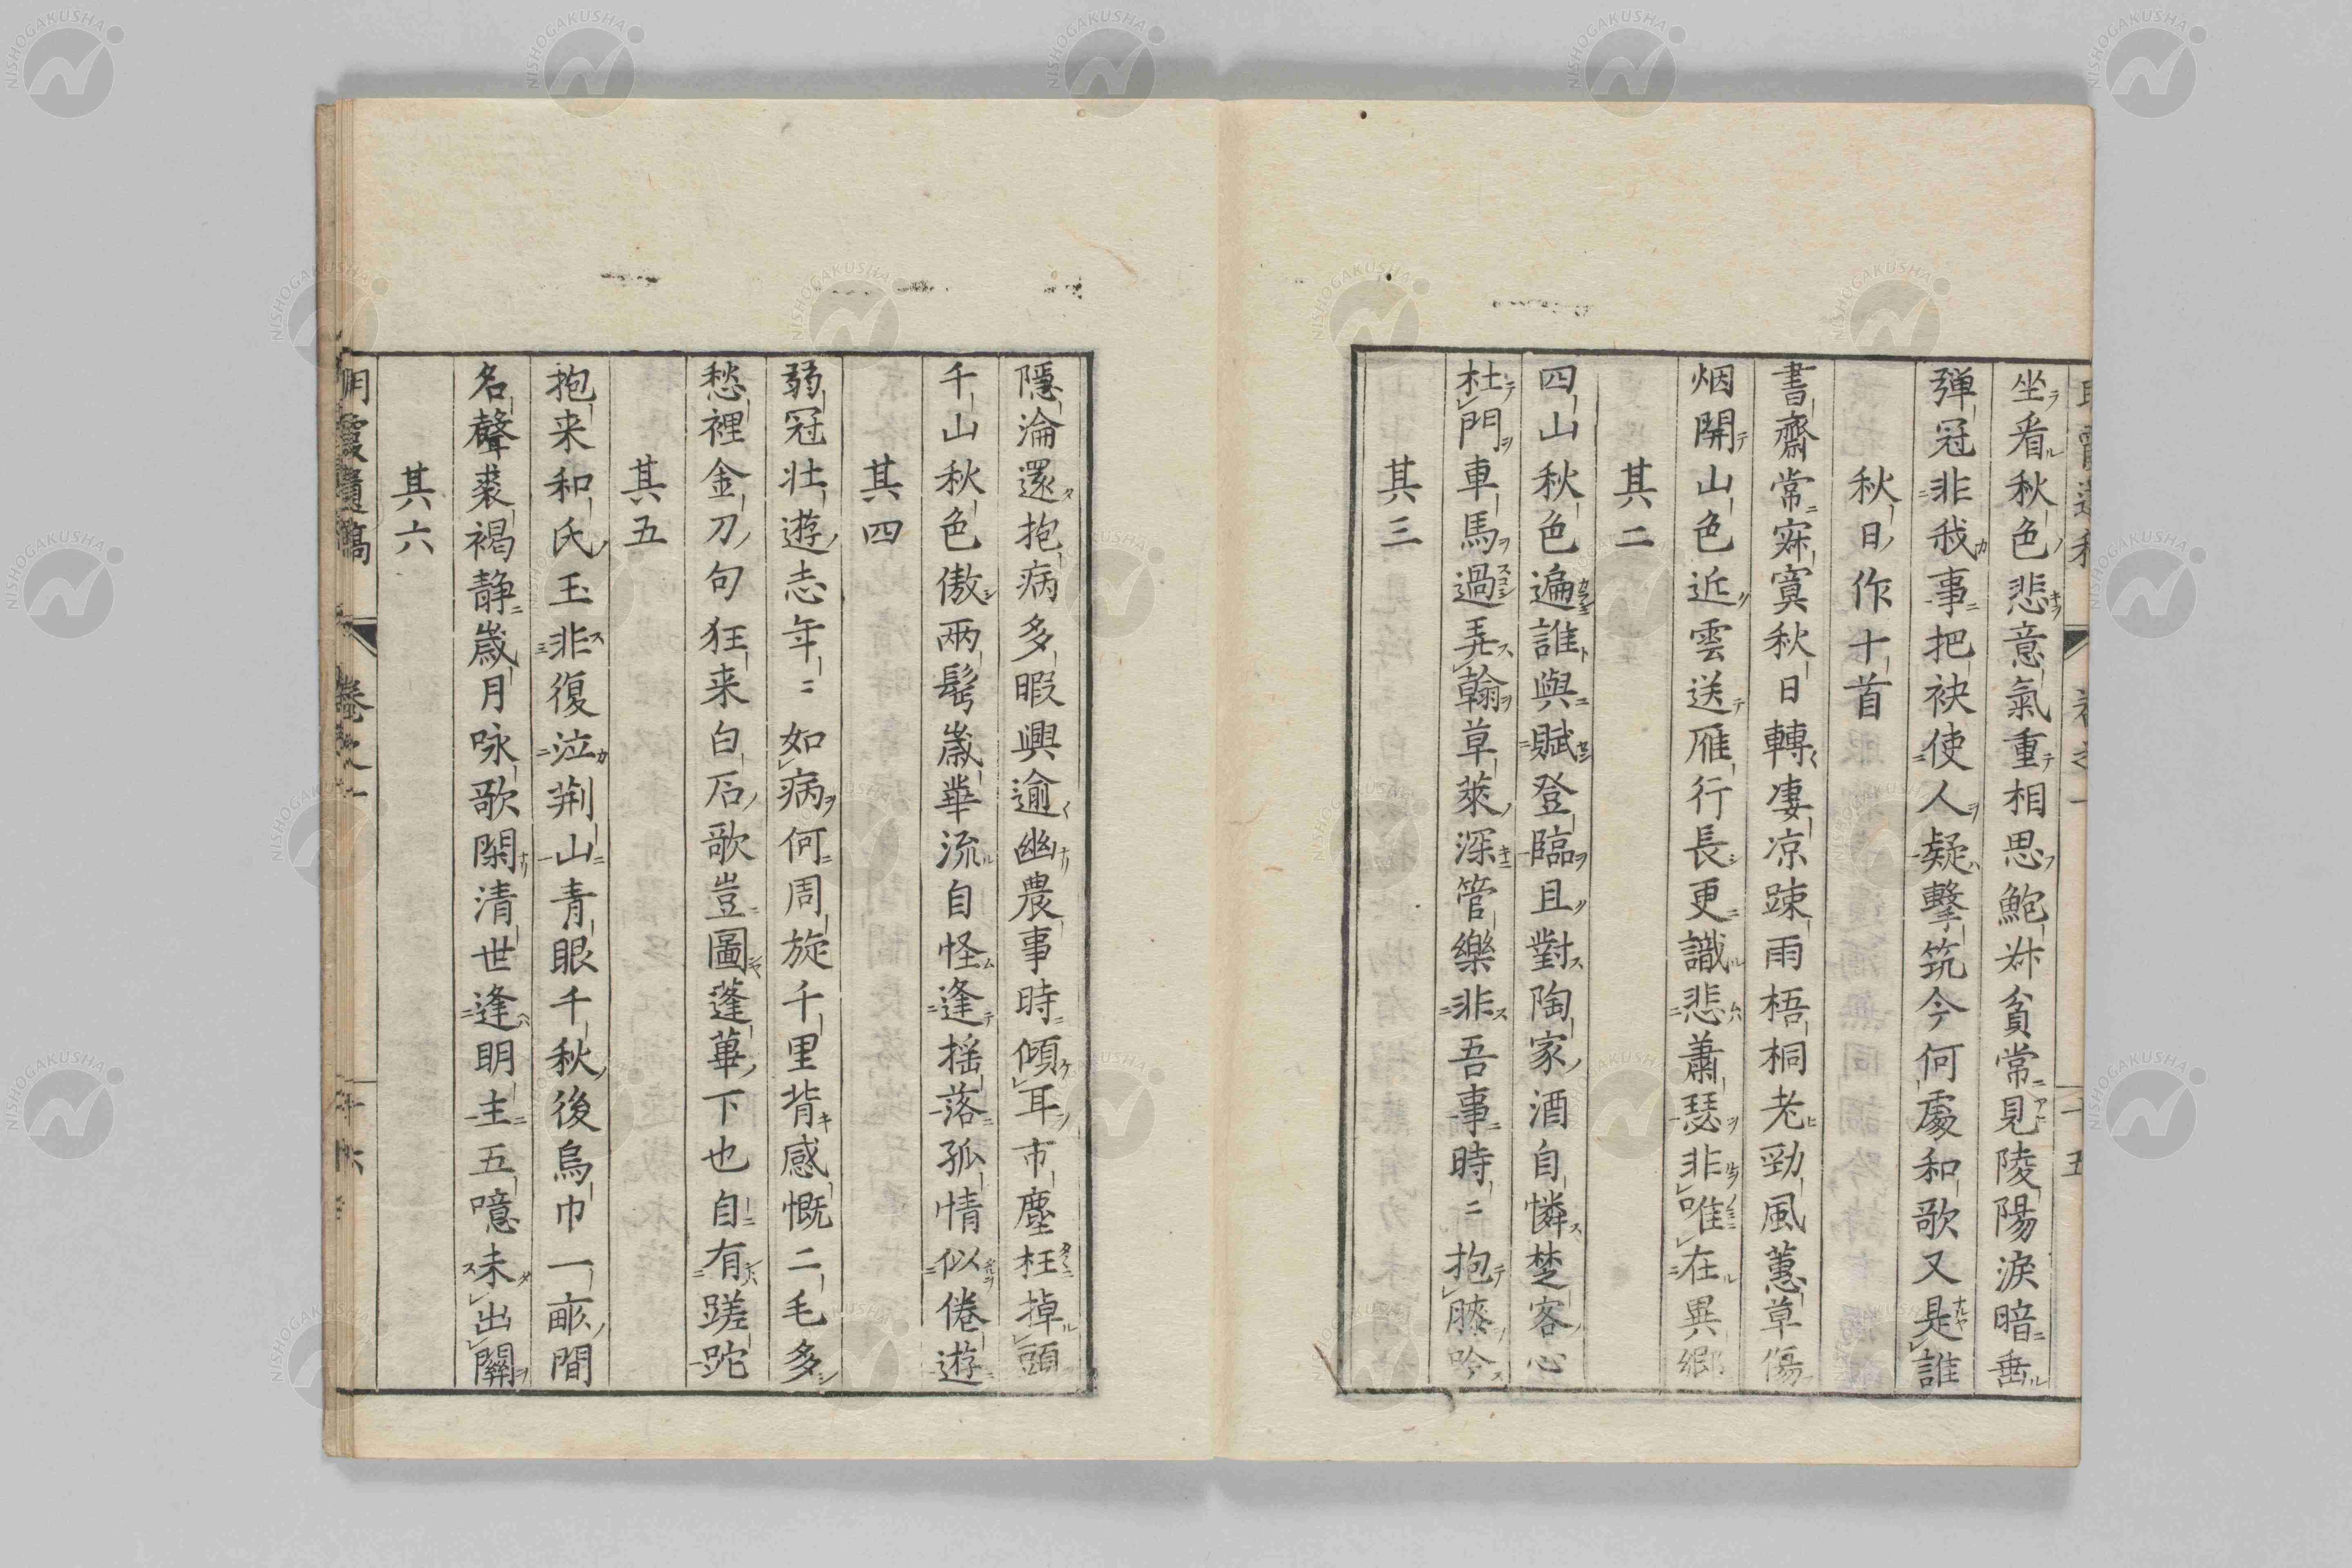 坐看秋色悲意氣重相思鮑叔貧常見陵陽淚暗垂
彈冠非我事把袂使人疑擊筑今何處和歌又是誰
秋日作十首
書齋常寂寞秋日轉凄凉踈雨梧桐老勁風蕙草傷
烟開山色近雲送雁行長更識悲蕭瑟非唯在異鄉
其二
四山秋色遍誰與賦登臨且對陶家酒自憐楚客心
杜門車馬過弄翰草萊深管樂非吾事時〻抱膝吟
其三
隱淪還抱病多暇興逾幽農事時傾耳市塵枉掉頭
千山秋色傲兩髩歲華流自怪逢揺落孤情似倦遊
其四
弱冠壯遊志年〻如病何周旋千里背感慨二毛多
愁裡金刀句狂来白石歌豈圖蓬蓽下也自有蹉跎
其五
抱来和氏玉非復泣荆山青眼千秋後烏巾一畝間
名聲裘褐静歲月咏歌閑清世逢明主五噫未出關
其六
明霞遺稿 卷之一
NISHOGAKUSHA